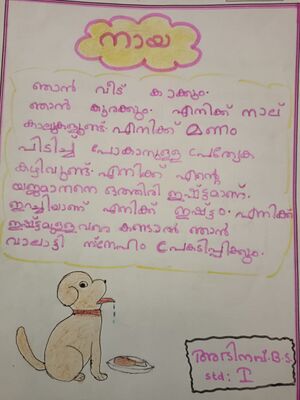 നായ
ഞാൻ വീട് കാക്കും.
ഞാൻ കുരക്കും. എനിക്ക് നാല്
കാലുകളുണ്ട്. എനിക്ക് മണം
പിടിച്ച് പോകാനുള്ള പ്രത്യേക
കഴിവുണ്ട്. എനിക്ക് എന്റെ
യജമാനനെ ഒത്തിരി ഇഷ്ട്ടമാണ്.
ഇറച്ചിയാണ് എനിക്ക് ഇഷ്ട്ടം. എനിക്ക്
ഇഷ്ട്ടമുള്ളവരെ കണ്ടാൽ ഞാൻ
വാലാട്ടി സ്നേഹം പ്രകടിപ്പിക്കും.
അഭിനവ്.B.S.
std: I